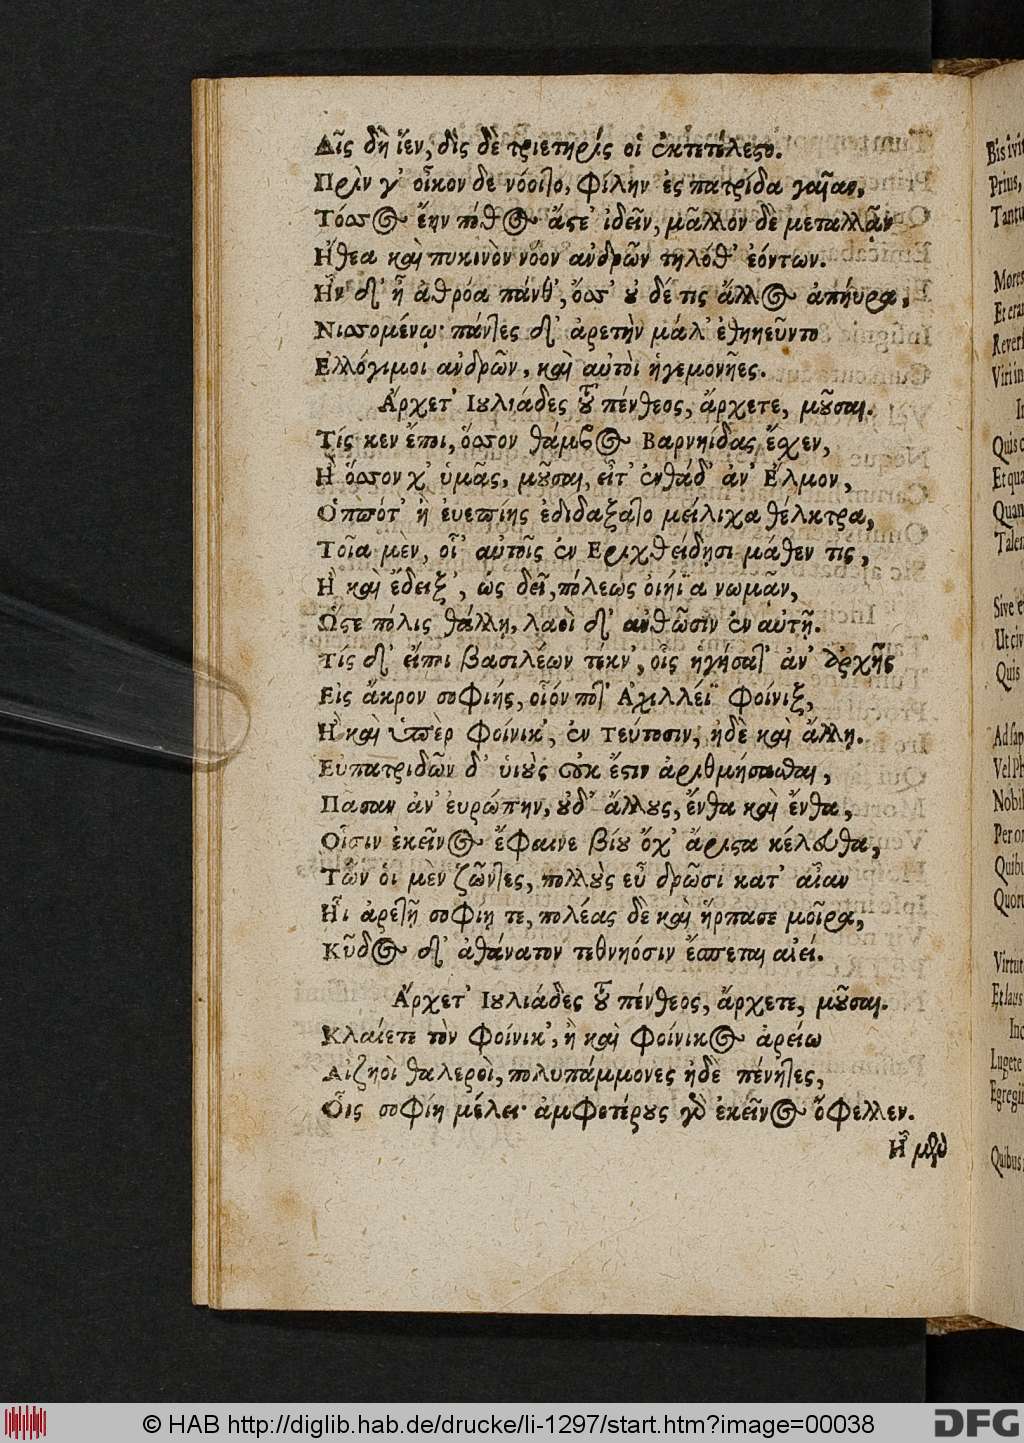 Δὶς δὴ ἴεν, δὶς δὲ τριετηρὶς οἱ ἐκτετέλεστο.
Πρὶν γ' οἶκον δε νόοιτο, φίλην ἐς πατρίδα γαῖαν,
Τόσσος ἔην πόθος ἄστε' ἰδεῖν, μᾶλλον δὲ μεταλλᾷν
Ἤθεα καὶ πυκινὸν νόον ἀνδρῶν τηλόθ' ἐόντων.
Ἦν δ' ἦ ἀθρόα πάνθ', ὅσσ' οὐ δέ τις ἄλλος ἀπηύρα,
Νισσομένῳ· πάντες δ' ἀρετὴν μάλ' ἐθηεῦντο
Ἐλλόγιμοι ἀνδρῶν, καὶ αὐτοὶ ἡγεμονῆες.
Ἄρχετ' Ἰουλιάδες τοῦ πένθεος, ἄρχετε, μοῦσαι.
Τίς κεν ἔποι, ὅσσον θάμβος Βαρνηίδας ἔχεν,
Ἢ ὅσσον χ' ὑμᾶς, μοῦσαι, εἶτ' ἐνθάδ' ἀν' Ἔλμον,
Ὁππότ' ἢ εὐεπίης ἐδιδάξατο μείλιχα θέλκτρα,
Τοῖα μὲν, οἷ' αὐτοῖς ἐν Ἐριχθείδῃσι μάθεν τις,
Ἢ καὶ ἔδειξ', ὡς δεῖ, πόλεως οἰήϊα νωμᾷν,
Ὥστε πόλις θάλλῃ, λαοὶ δ' ἀνθῶσιν ἐν αὐτῇ.
Τίς δ' εἴποι βασιλέων τέκν', οἷς ἡγήσατ' ἀν' ἀρχῆς
Εἰς ἄκρον σοφιής, οἷόν ποτ' Ἀχιλλέϊ Φοίνιξ,
Ἢ καὶ ὑπὲρ Φοίνικ', ἐν τεύτοσιν, ἠδὲ καὶ ἄλλῃ.
Εὐπατριδῶν δ' υἱοὺς οὐκ ἔστιν ἀριθμήσασθαι,
Πᾶσαν ἀν' εὐρώπην, οὐδ' ἄλλους, ἔνθα καὶ ἔνθα,
Οἷσιν ἐκεῖνος ἔφαινε βίου ὄχ' ἄριστα κέλευθα,
Τῶν οἱ μὲν ζῶντες, πολλοὺς εὖ δρῶσι κατ' αἶαν
Ἧι ἀρετῇ σοφιῃ τε, πολέας δὲ καὶ ἥρπασε μοῖρα,
Κῦδος δ' ἀθάνατον τεθνηόσιν ἕσπεται αἰεί.
Ἄρχετ' Ἰουλιάδες τοῦ πένθεος, ἄρχετε, μοῦσαι.
Κλαίετε τὸν Φοίνικ', ἢ καὶ Φοίνικος ἀρείω
Αἰζηοὶ θαλεροὶ, πολυπάμμονες ἠδὲ πένητες,
Οἷς σοφίη μέλει· ἀμφοτέρους γὰρ ἐκεῖνος ὄφελλεν.
Ἦ μὲν
Bis ivit
Prius,
Tantu
Mores
Et erat
Reverf
Viri in
Quis c
Et qua
Quan
Talem
Sive e
Ut civ
Quis
Ad sap
Vel Ph
Nobil
Per or
Quibu
Quoru
Virtut
Et laus
Inc
Lugete
Egregii
Quibus
© HAB http://diglib.hab.de/drucke/li-1297/start.htm?image=00038
DFG